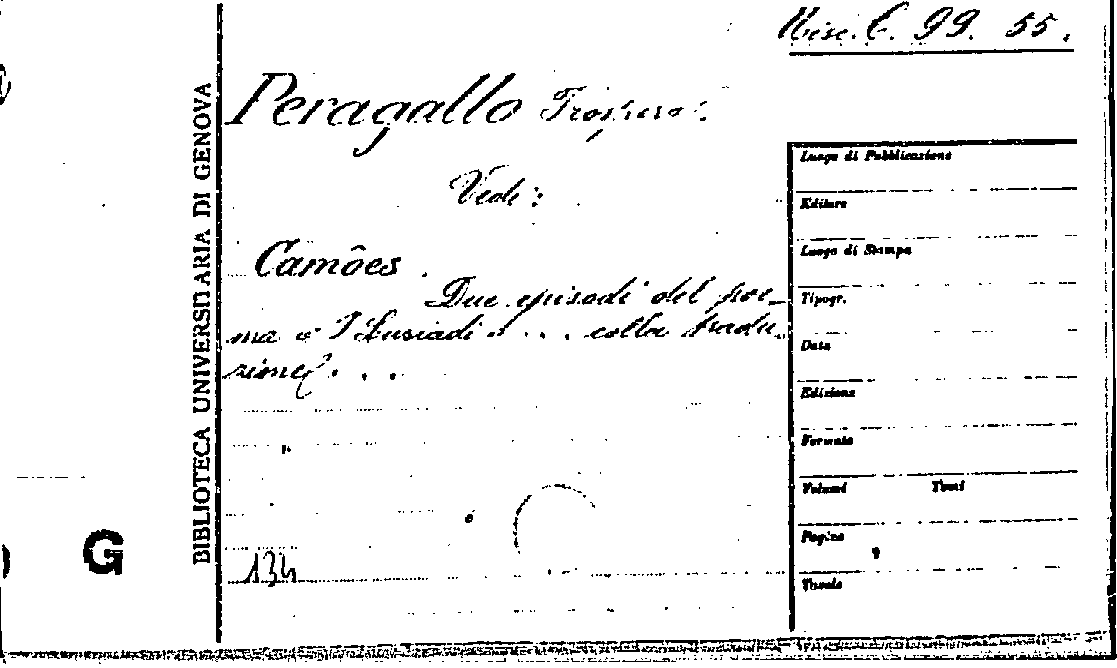 Misc. C. 99. 55.
Peragallo Prospero.
Vedi:
Camões.
Due episodi del poe-
ma « I Lusiadi » ... colla tradu-
zione ...
134
BIBLIOTECA UNIVERSITARIA DI GENOVA
G
Luogo di Pubblicazione
Editore
Luogo di Stampa
Tipogr.
Data
Edizione
Formato
Volumi Tomi
Pagine
Tavole